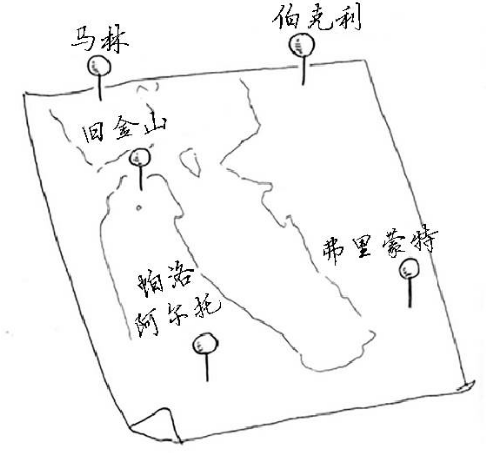 马林
伯克利
旧金山
弗里蒙特
帕洛
阿尔托